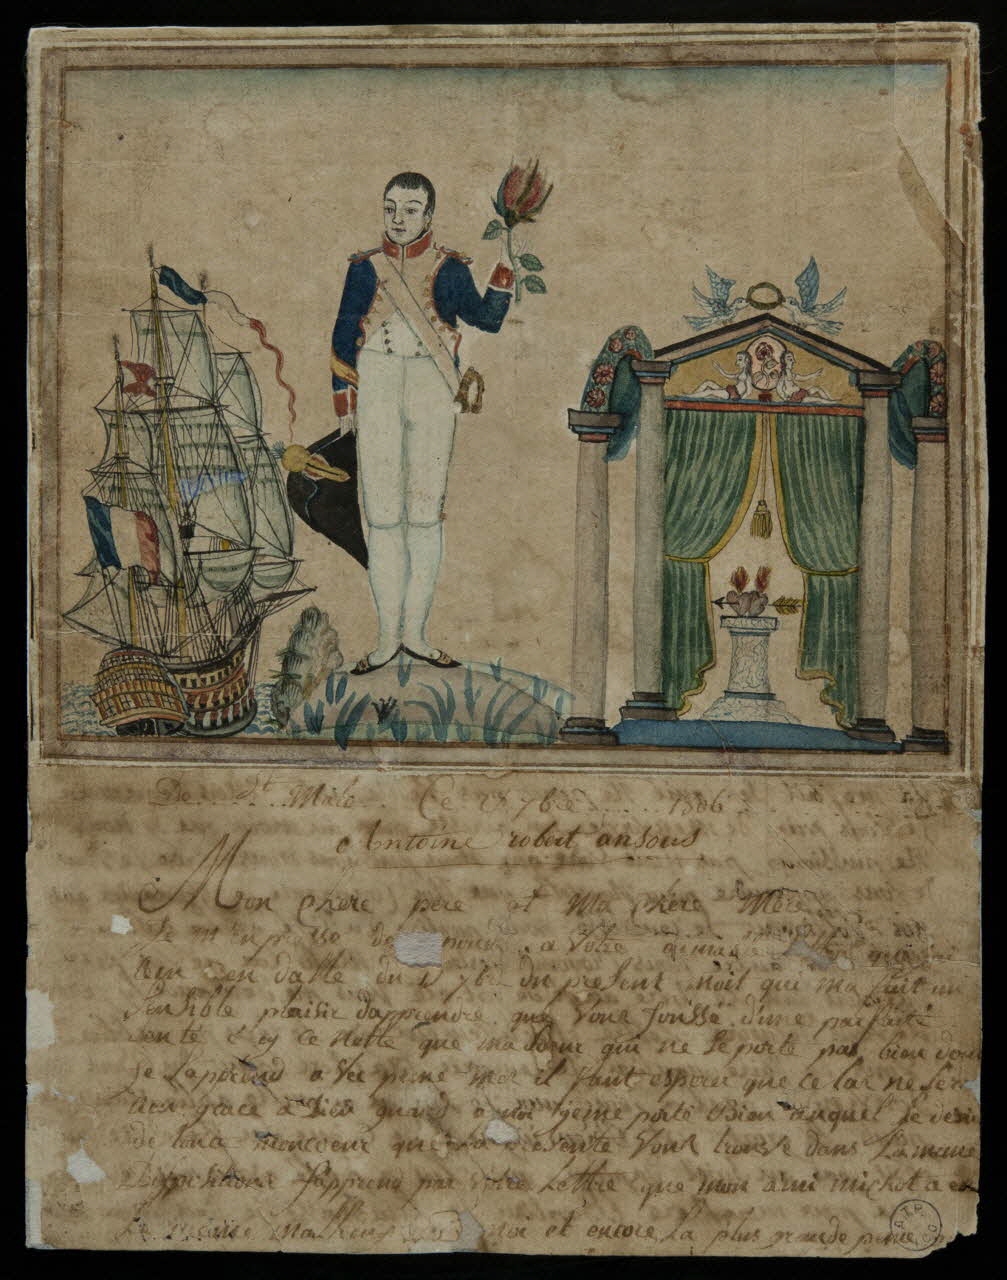 De St Malo Ce 28 7bre 1806
Antoine robert ansous
Mon chere pere et Ma chere Mere
Je m'enpresse de a Votre
en datte du 7bre du present moit que ma fait un
sensible plaisir daprendre que Vous Jouissé d'une parfaite
senté Cy ce nette que ma Soeur qui ne se porte pas bien
Je Laprend a Vec peine mes il faut esperer que ce lar ne sera
rien grace a Dieu quand a moi Je me porte Bien auquel Je desire
de tout moncoeur que La presente Vous trouve dans La meme
Disposition J'apprend par Votre Lettre que mon ami michot a
Le meme malheur moi et encore La plus grande peine
A.T.P.